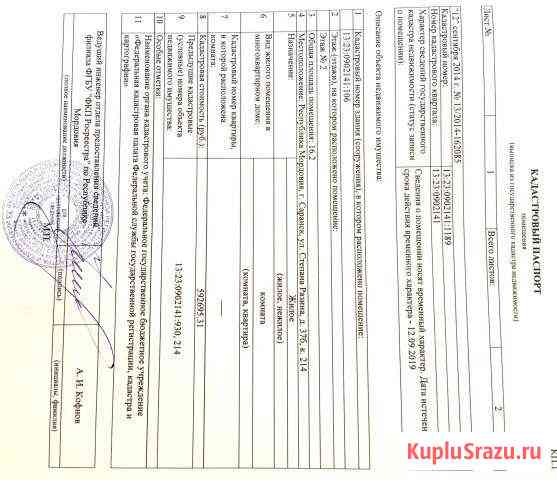 КП.1
КАДАСТРОВЫЙ ПАСПОРТ
помещения
(выписка из государственного кадастра недвижимости)
Лист № 1 Всего листов: 2
"12" сентября 2014 г. № 13/2014-162085
Кадастровый номер: 13:23:0902141:1189
Номер кадастрового квартала: 13:23:0902141
Характер сведений государственного кадастра недвижимости (статус записи о помещении): Сведения о помещении носят временный характер. Дата истечения срока действия временного характера - 12.09.2019
Описание объекта недвижимого имущества:
1 Кадастровый номер здания (сооружения), в котором расположено помещение:
13:23:0902141:106
2 Этаж (этажи), на котором расположено помещение:
Этаж № 2
3 Общая площадь помещения: 16.2
4 Местоположение: Республика Мордовия, г. Саранск, ул. Степана Разина, д. 37б, к. 214
5 Назначение: Жилое
(жилое, нежилое)
6 Вид жилого помещения в многоквартирном доме: комната
(комната, квартира)
7 Кадастровый номер квартиры, в которой расположена комната: —
8 Кадастровая стоимость (руб.): 592695.31
9 Предыдущие кадастровые (условные) номера объекта недвижимого имущества: 13:23:0902141:930, 214
10 Особые отметки:
11 Наименование органа кадастрового учета: Федеральное государственное бюджетное учреждение
«Федеральная кадастровая палата Федеральной службы государственной регистрации, кадастра и
картографии»
Ведущий инженер отдела предоставления сведений
филиала ФГБУ "ФКП Росреестра" по Республике
Мордовия
А. И. Кофнов
(полное наименование должности) (подпись) (инициалы, фамилия)
М.П.
KupluSrazu.ru